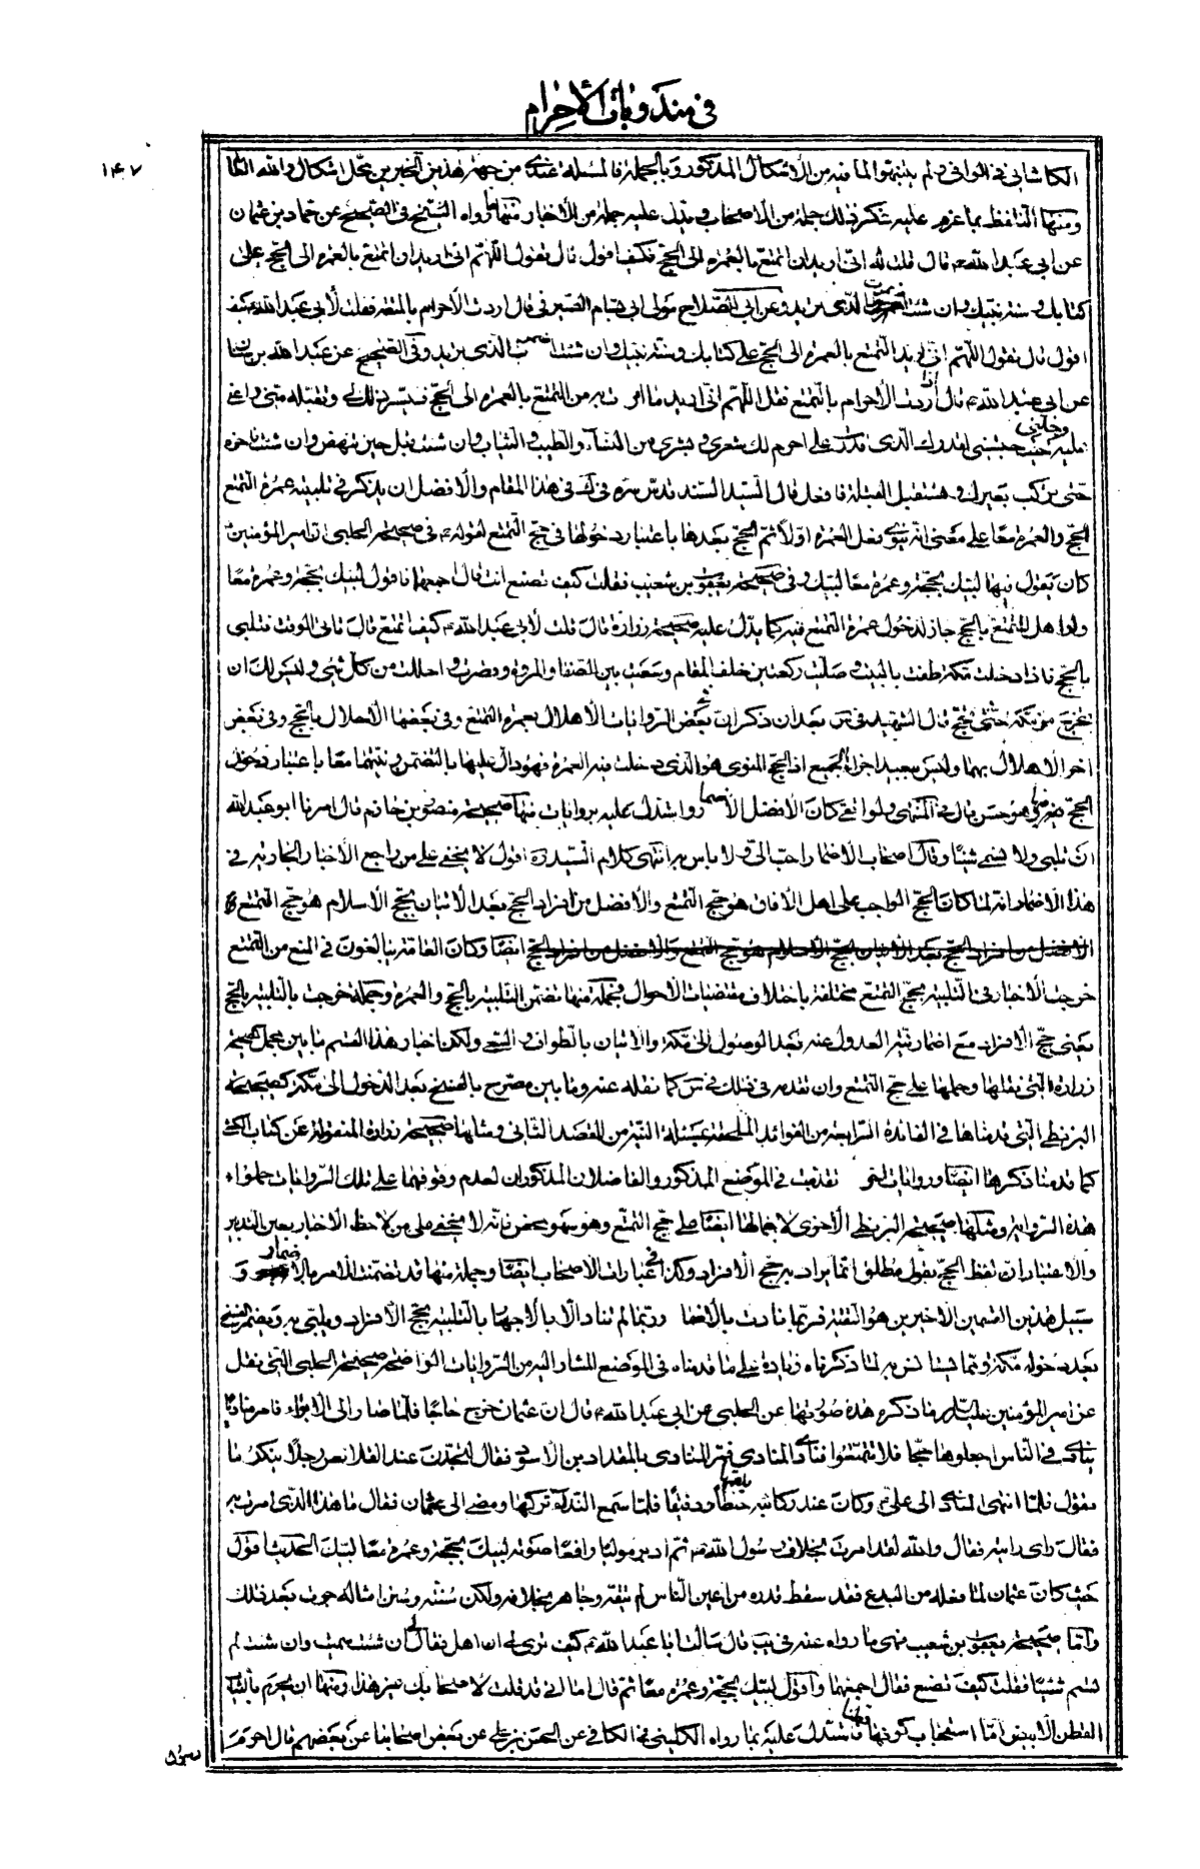 في مندوبات الاحرام
١٤٧
الكاشاني في الوافي ولم يتنبهوا لما فيه من الاشكال المذكور وبالجملة فالمسئلة عندي من جهة هذين الخبرين محل اشكال والله العالم
ومنها التلفظ بما عزم عليه ذكر ذلك جملة من الاصحاب ويدل عليه جملة من الاخبار منها ما رواه الشيخ في الصحيح عن حماد بن عثمان
عن ابي عبد الله ع قال قلت له اني اريد ان اتمتع بالعمرة الى الحج فكيف اقول قال تقول اللهم اني اريد ان اتمتع بالعمرة الى الحج على
كتابك وسنة نبيك وان شئت اضمرت الذي تريد وعن ابي الصلاح مولى بسام الصيرفي قال اردت الاحرام بالمتعة فقلت لأبي عبد الله ع كيف
اقول قال تقول اللهم اني اريد التمتع بالعمرة الى الحج على كتابك وسنة نبيك وان شئت اضمرت الذي تريد وفي الصحيح عن عبد الله بن سنان
عن ابي عبد الله ع قال اذا اردت الأحرام بالتمتع فقل اللهم اني اريد ما امرت به من التمتع بالعمرة الى الحج فيسر ذلك لي وتقبله مني واعني
عليه وحلني حيث حبستني لقدرك الذي قدرت علي احرم لك شعري وبشري من النساء والطيب والثياب وان شئت قبل حين تنهض وان شئت فاخره
حتى تركب بعيرك وتستقبل القبلة فافعل قال السيد السند قدس سره في ك في هذا المقام والأفضل ان يذكر في تلبيته عمرة التمتع
الحج والعمرة معا على معنى انه ينوي فعل العمرة اولا ثم الحج بعدها باعتبار دخولها في حج التمتع لقوله ع في صحيحة الحلبي ان امير المؤمنين ع
كان يقول فيها لبيك بحجة وعمرة معا لبيك وفي صحيحة يعقوب بن شعيب فقلت كيف تصنع انت قال اجمعهما فاقول لبيك بحجة وعمرة معا
ولو اهل المتمتع بالحج جاز لدخول عمرة التمتع فيه كما يدل عليه صحيحة زرارة قال قلت لأبي عبد الله ع كيف اتمتع قال تاتي الوقت فتلبي
بالحج فاذا دخلت مكة طفت بالبيت وصليت ركعتين خلف المقام وسعيت بين الصفا والمروة وقصرت واحللت من كل شيء وليس لك ان
تخرج من مكة حتى تحج قال الشهيد في س بعد ان ذكر ان في بعض الروايات الأهلال بعمرة التمتع وفي بعضها الأهلال بالحج وفي بعض
اخر الاهلال بهما وليس ببعيد اجزاء الجميع اذ الحج المنوي هو الذي دخلت فيه العمرة فهو دال عليها بالتضمن ونيتهما معا باعتبار دخول
الحج فيها وهو حسن قال في المنتهى ولو اتقى كان الافضل الأضمار واستدل عليه بروايات منها صحيحة منصور بن حازم قال امرنا ابو عبد الله
ان نلبي ولا نسمي شيئا وقال اصحاب الاضمار احب الي ولا باس به انتهى كلام السيد ره اقول لا يخفى على من راجع الأخبار الجارية في
هذا الأضمار انه لما كان الحج الواجب على اهل الأفاق هو حج التمتع والأفضل من افراد الحج بعد الأتيان بحج الاسلام هو حج التمتع
الافضل من افراد الحج بعد الاتيان بحج الأسلام هو حج التمتع والافضل من افراد الحج ايضا وكان العامة يبالغون في المنع من التمتع
خرجت الأخبار في التلبية بحج التمتع مختلفة باختلاف مقتضيات الأحوال فجملة منها تضمن التلبية بالحج والعمرة وجملة خرجت بالتلبية بالحج
يعني حج الافراد مع اضمار نية العدول عنه بعد الوصول الى مكة والاتيان بالطواف والسعي ولكن اخبار هذا القسم ما بين مجمل كصحيحة
زرارة التي نقلها وحملها على حج التمتع وان تقدمه في ذلك في س كما نقله عنه وما بين مصرح بالفسخ بعد الدخول الى مكة كصحيحة
البزنطي التي قدمناها في الفائدة الرابعة من الفوائد الملحقة بمسئلة النية من المقصد الثاني ومثلها صحيحة زرارة المنقولة عن كتاب الكشي
كما قدمنا ذكرها ايضا وروايات اخر تقدمت في الموضع المذكور والفاضلان المذكوران لعدم وقوفهما على تلك الروايات حملوا
هذه الرواية ومثلها صحيحة البزنطي الأخرى لاجمالها ايضا على حج التمتع وهو سهو محض فانه لا يخفى على من لاحظ الاخبار بعين التدبر
والاعتبار ان لفظ الحج بقول مطلق انما يراد به حج الأفراد وكذا في عبارات الأصحاب ايضا وجملة منها قد تضمنت الأمر بالاضمار و
سبيل هذين القسمين الاخيرين هو التقية فربما تادت بالأخفاء وربما لم تتاد الا بالأجهار بالتلبية بحج الأفراد ويلبي به ويضمر فسخه
بعد دخوله مكة ومما يستانس به لما ذكرناه زيادة على ما قدمناه في الموضع المشار اليه من الروايات الواضحة صحيحة الحلبي التي نقل
عن امير المؤمنين عليه السلام ما ذكره هذه صورتها عن الحلبي عن ابي عبد الله ع قال ان عثمان خرج حاجا فلما صار الى الأبواء امر مناديا
ينادي في الناس اجعلوها حجا فلا تمتعوا فنادى المنادي فمر المنادي بالمقداد بن الأسود فقال لتجدن عند القلائص رجلا ينكر ما
تقول فلما انتهى المنادي الى علي ع وكان عند ركائبه يلقمها خبطا ودقيقا فلما سمع النداء تركها ومضى الى عثمان فقال ما هذا الذي امرت به
فقال راي رايته فقال والله لقد امرت بخلاف رسول الله ص ثم ادبر موليا رافعا صوته لبيك بحجة وعمرة معا لبيك الحديث اقول
حيث كان عثمان لما فعله من البدع فقد سقط قدره من اعين الناس لم يتقه وجاهر بخلافه ولكن سنته وسنن امثاله جرت بعد ذلك
واما صحيحة يعقوب بن شعيب فهي ما رواه عنه في يب قال سالت ابا عبد الله ع كيف ترى لي ان اهل فقال لي ان شئت سميت وان شئت لم
تسم شيئا فقلت كيف تصنع فقال اجمعهما واقول لبيك بحجة وعمرة معا ثم قال اما اني قد قلت لاصحابك غير هذا ومنها ان يحرم بالثياب
القطن الأبيض اما استحباب كونها قطنا فاستدل عليه بما رواه الكليني في الكافي عن الحسن بن علي عن بعض اصحابنا عن بعضهم قال احرم
رسول